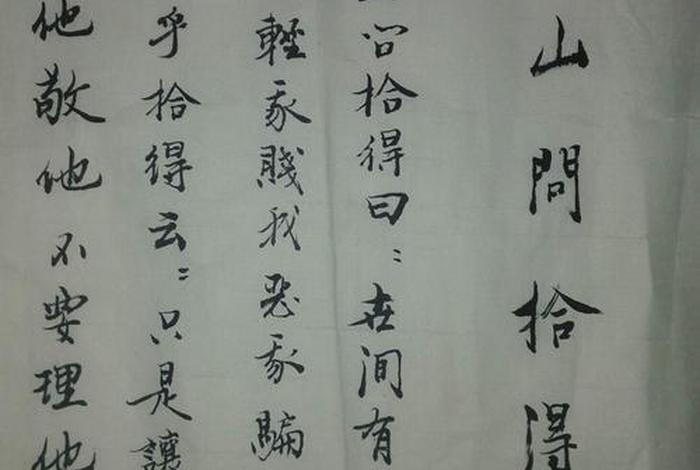 山問拾得
問拾得曰：世間有
輕我賤我惡我騙
乎拾得云：只是讓
他敬他不要理他